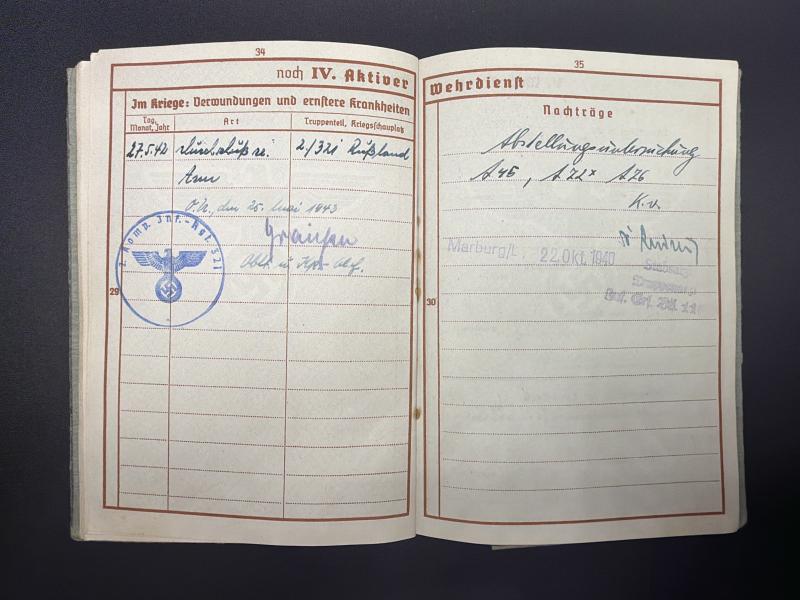 34
noch IV. Aktiver
Im Kriege: Verwundungen und ernstere Krankheiten
Tag, Monat, Jahr
Art
Truppenteil, Kriegsschauplatz
27.5.42 Durchschuß re. 2./321 Rußland
Arm
O.U., den 25. Mai 1943
Oblt. u. Kp.-
2. Komp. Inf.-Rgt. 321
29
35
Wehrdienst
Nachträge
Abstellungsuntersuchung
A 45, A 72x A 76
K.v.
Marburg/L., 22. Okt. 1940
30